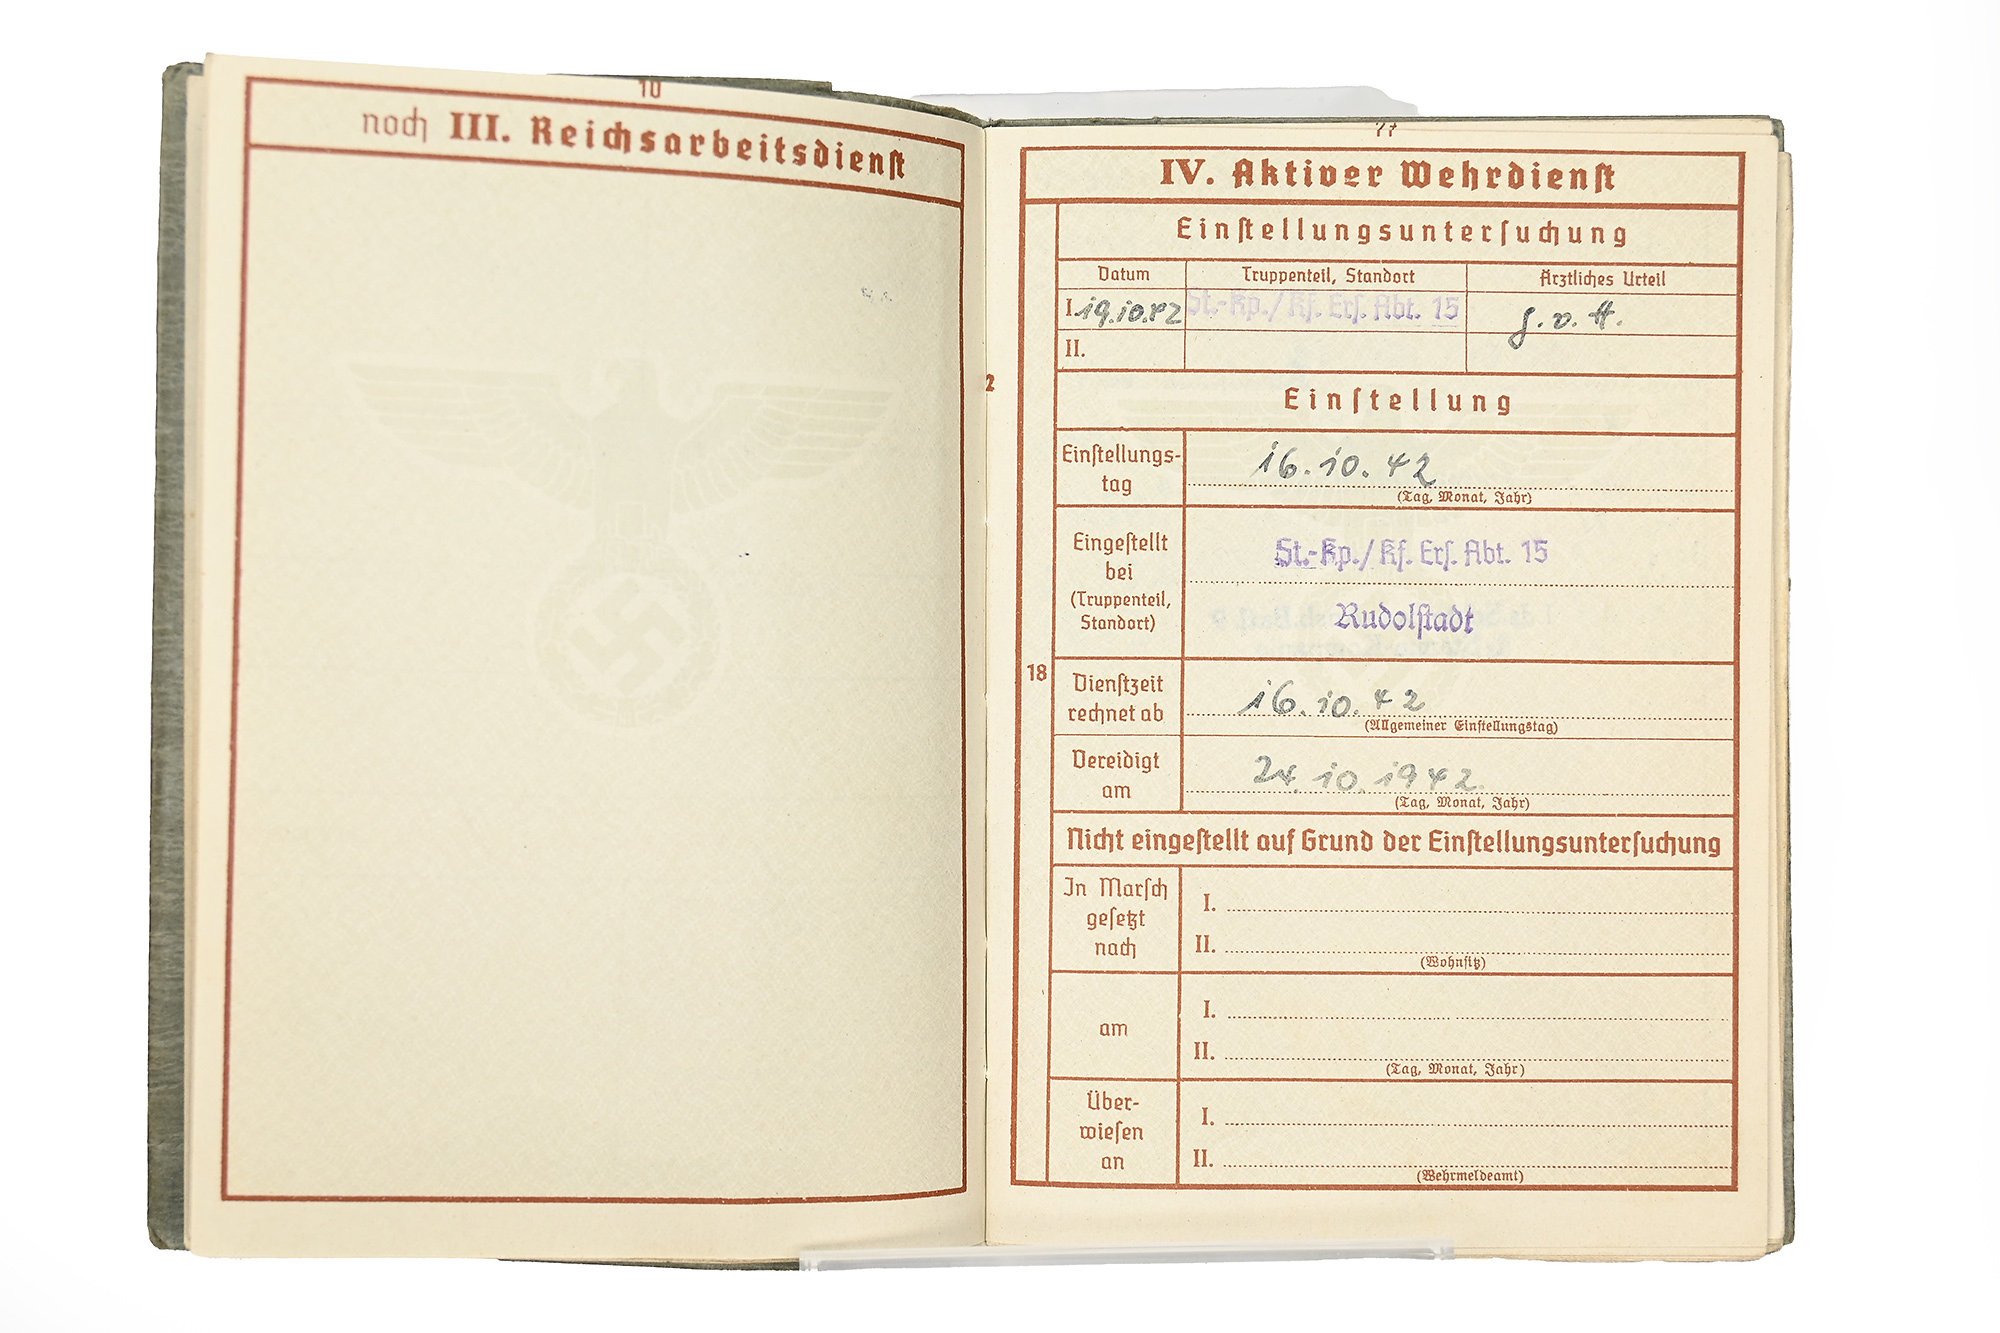 10
noch III. Reichsarbeitsdienst
11
IV. Aktiver Wehrdienst
Einstellungsuntersuchung
Datum Truppenteil, Standort Ärztliches Urteil
I. 19.10.42 St.-Kp./Kf. Ers. Abt. 15 g. v. H.
II.
2
Einstellung
Einstellungs-
tag
16.10.42
(Tag, Monat, Jahr)
Eingestellt
bei
(Truppenteil,
Standort)
St.-Kp./Kf. Ers. Abt. 15
Rudolstadt
18
Dienstzeit
rechnet ab
16.10.42
(Allgemeiner Einstellungstag)
Vereidigt
am
24.10.1942.
(Tag, Monat, Jahr)
Nicht eingestellt auf Grund der Einstellungsuntersuchung
In Marsch
gesetzt
nach
I.
II.
(Wohnsitz)
am
I.
II.
(Tag, Monat, Jahr)
Über-
wiesen
an
I.
II.
(Wehrmeldeamt)